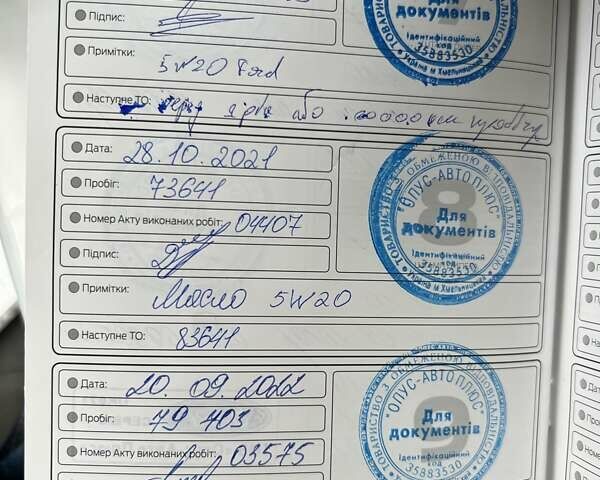 Підпис:
Примітки: 5W20 Ford
Наступне ТО: або
Для
документів
Ідентифікаційний
код
35883530
* Україна м Хмельницький *
Дата: 28.10.2021
Пробіг: 73641
Номер Акту виконаних робіт: 04407
Підпис:
Примітки: Масло 5W20
Наступне ТО: 83641
8
ТОВАРИСТВО З ОБМЕЖЕНОЮ ВІДПОВІДАЛЬНІСТЮ
"ОПУС-АВТОПЛЮС"
Для
документів
Ідентифікаційний
код
35883530
* Україна м Хмельницький *
Дата: 20.09.2022
Пробіг: 79 703
Номер Акту виконаних робіт: 03575
9
ТОВАРИСТВО З ОБМЕЖЕНОЮ ВІДПОВІДАЛЬНІСТЮ
"ОПУС-АВТОПЛЮС"
Для
документів
Ідентифікаційний
код
35883530